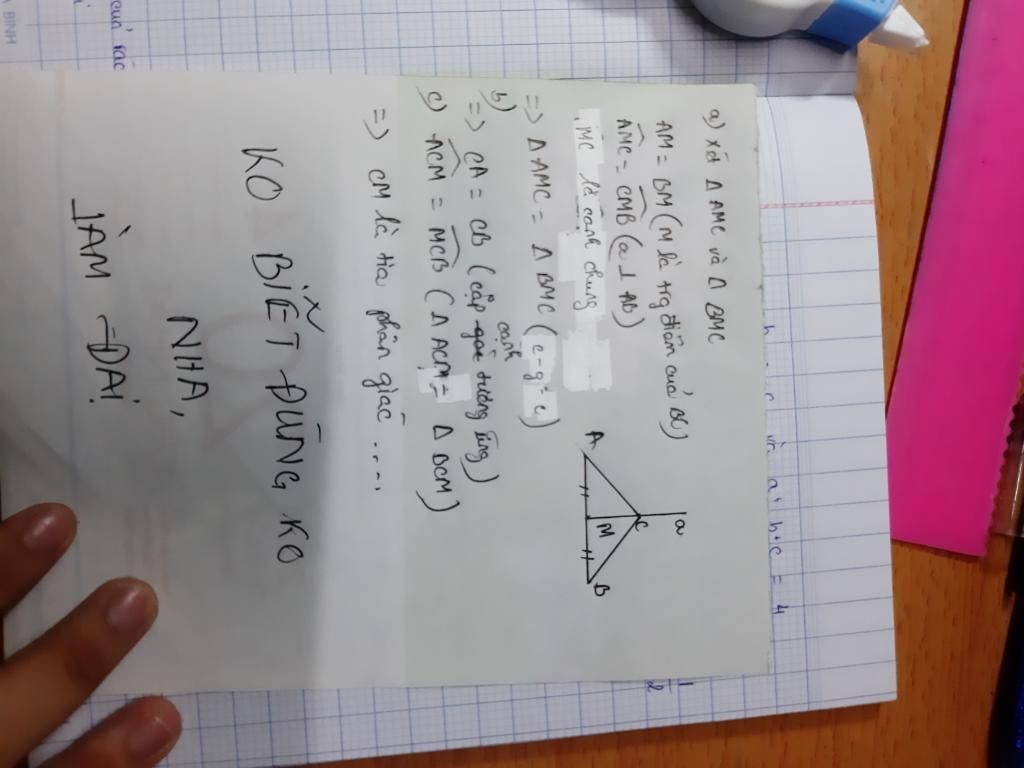 a) xét Δ AMC và Δ BMC
AM = BM (M là tg điểm cuả BC)
AMC = CMB (a ⊥ AB)
MC là cạnh chung
=> Δ AMC = Δ BMC (c-g-c)
b)
=> CA = CB (cặp cạnh tương ứng)
c) ACM = MCB (Δ ACM = Δ BCM)
=> CM là tia phân giác .....
a
C
A
M
B
KO BIẾT ĐÚNG KO
NHA,
LÀM ĐẠI
b+c = 4
1
2
BÌNH